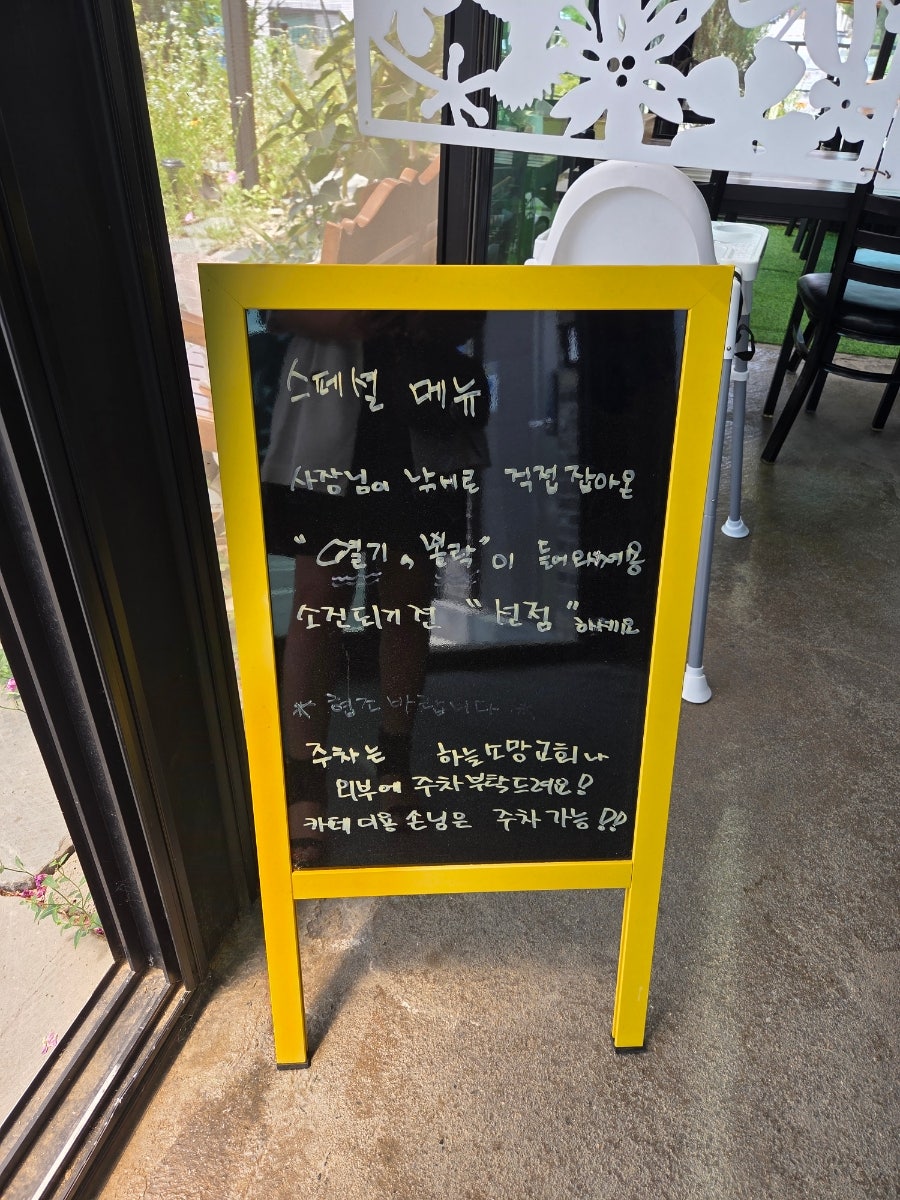 스페셜 메뉴
사장님이 낚시로 직접 잡아온
"열기, 뽈락"이 들어와써용
소진되기 전 "선점" 하세요
※ 협조바랍니다 ※
주차는 하늘소망교회나
외부에 주차부탁드려요!
카페 이용 손님은 주차 가능!!